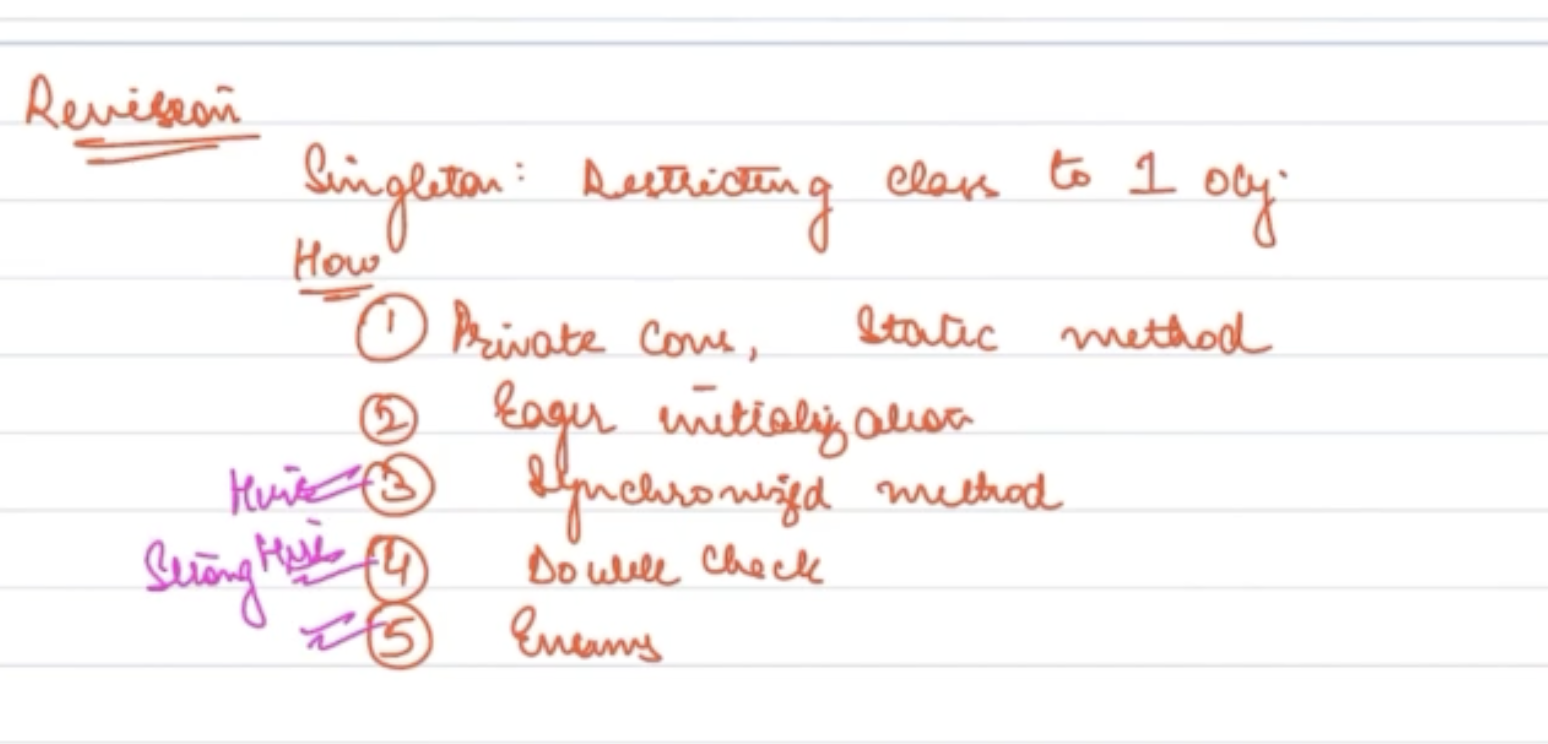 Revision
Singleton: Restricting class to 1 obj.
How
1 Private Cons, Static method
2 Eager initialization
Hire 3 Synchronized method
Strong Hire 4 Double Check
5 Enums